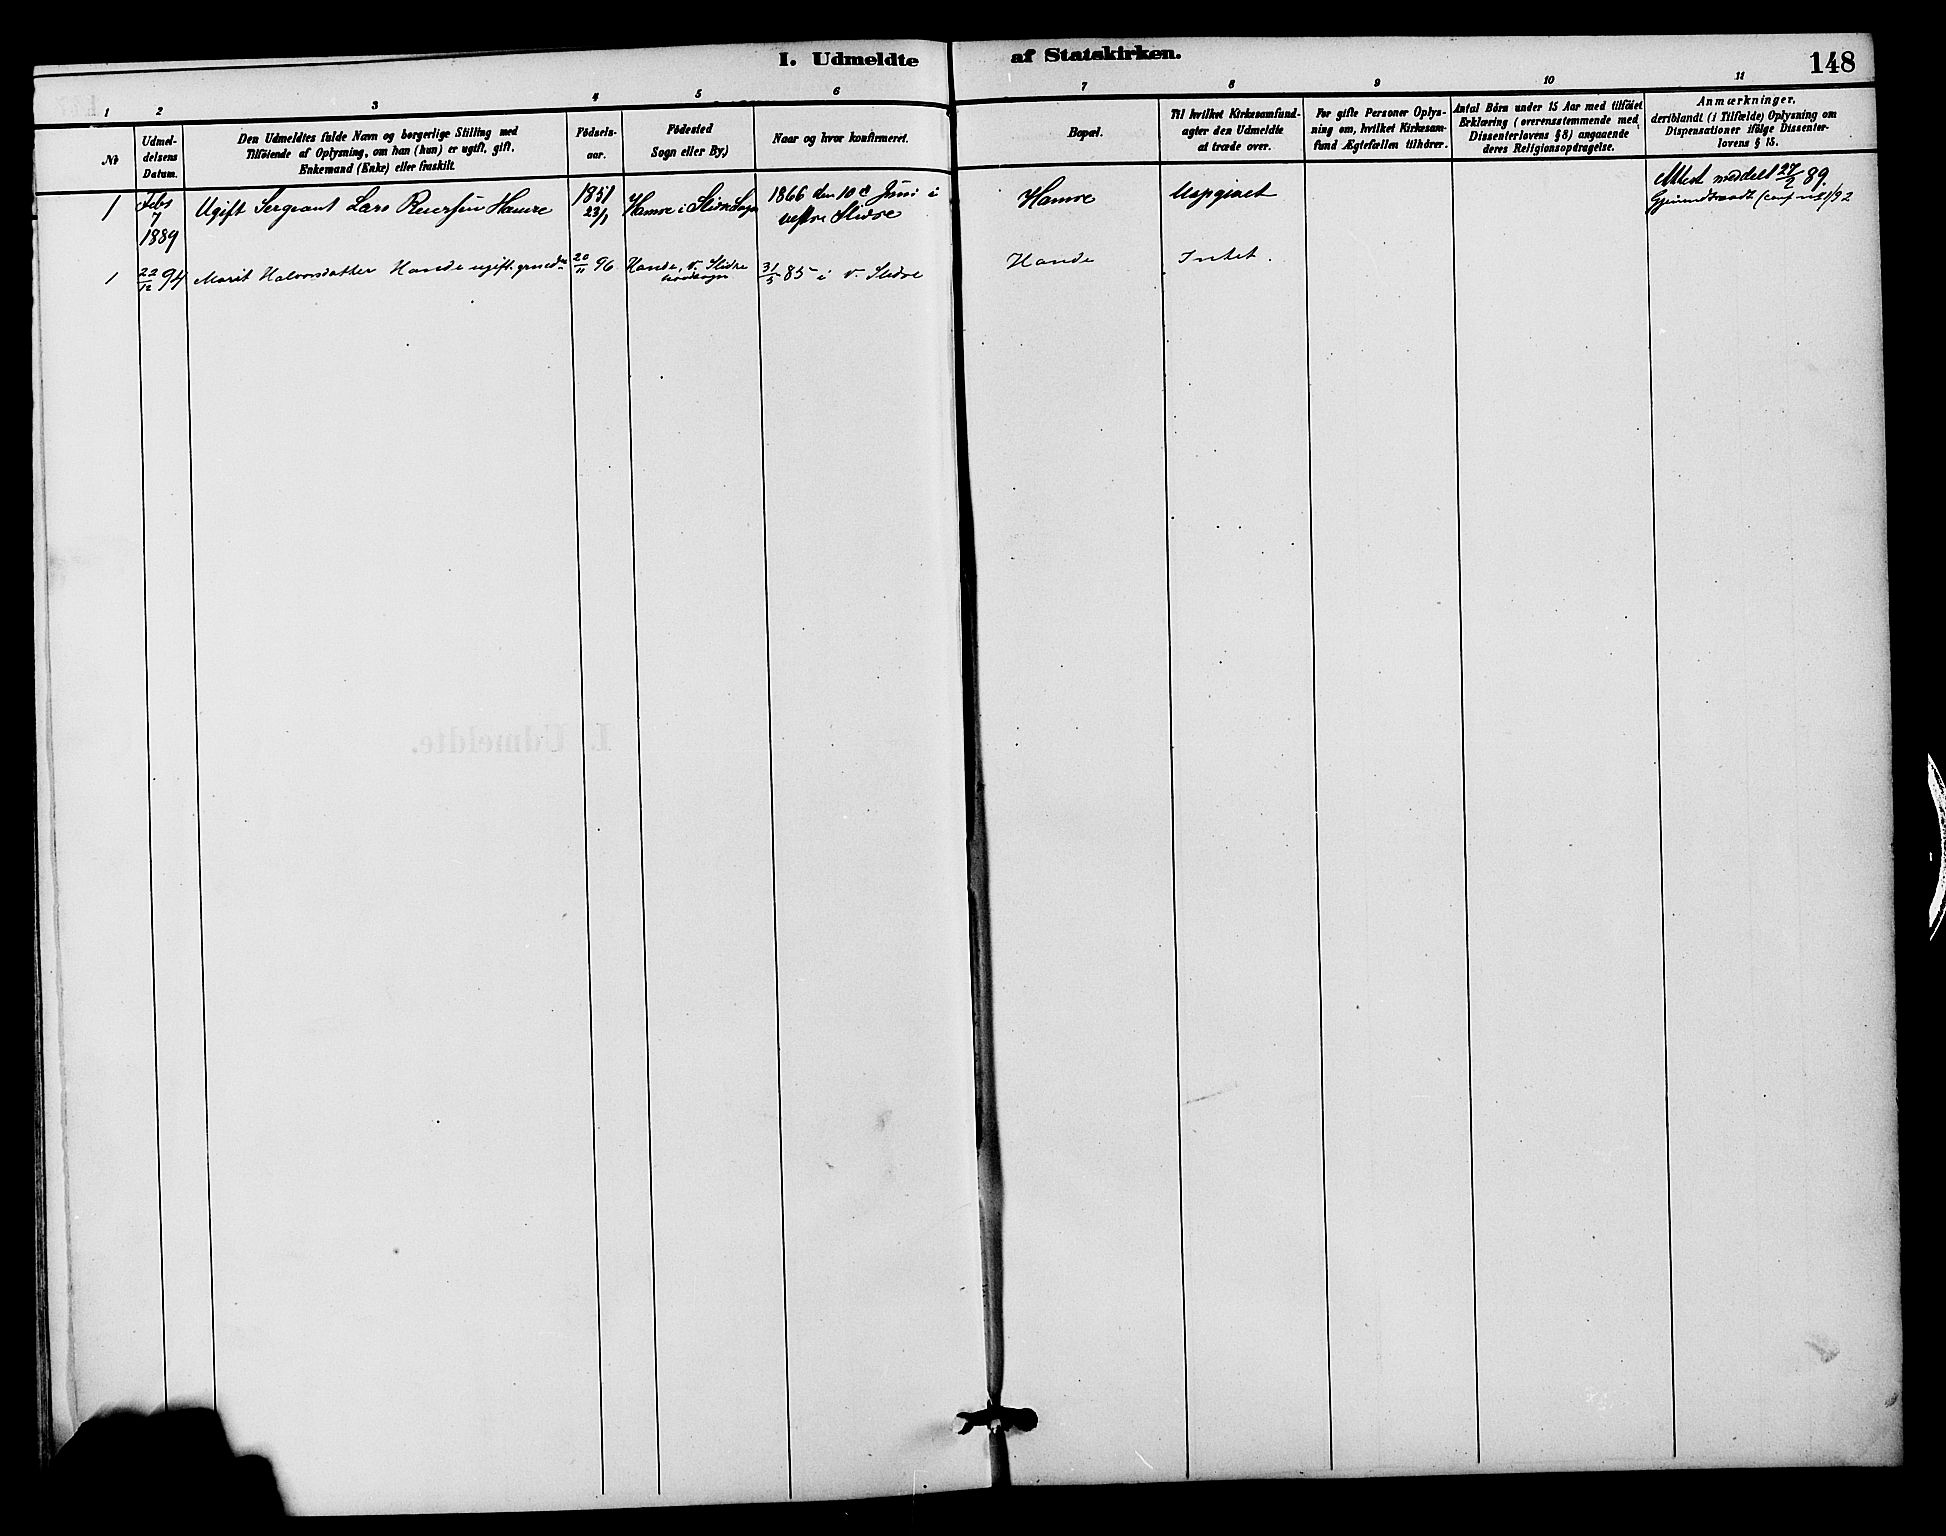 I. Udmeldte af Statskirken.
148
1 2 3 4 5 6 7 8 9 10 11
No
Udmel-
delsens
Datum.
Den Udmeldtes fulde Navn og borgerlige Stilling med
Tilföiende af Oplysning, om han (hun) er ugift, gift,
Enkemand (Enke) eller fraskilt.
Födsels-
aar.
Födested
Sogn eller By.)
Naar og hvor konfirmeret.
Bopæl.
Til hvilket Kirkesamfund-
agter den Udmeldte
at træde over.
For gifte Personer Oplys-
ning om, hvilket Kirkesam-
fund Ægtefællen tilhörer.
Antal Börn under 15 Aar med tilföiet
Erklæring (overensstemmende med
Dissenterlovens § 8) angaaende
deres Religionsopdragelse.
Anmærkninger,
deriblandt (i Tilfælde) Oplysning om
Dispensationer ifölge Dissenter-
lovens § 15.
1
Feb
7
1889
Ugift Sergeant Lars Reiersen Hamre
1851
23/1
Hamre i Slidre Sogn
1866 den 10d Juni i
vestre Slidre
Hamre
Uopgivet
Attest meddelt 27/2 89.
1
22/12 94
Marit Halvorsdatter Hande ugift
20/11 96
Hande, V. Slidre
31/5 85 i V. Slidre
Hande
Intet.
I. Udmeldte.